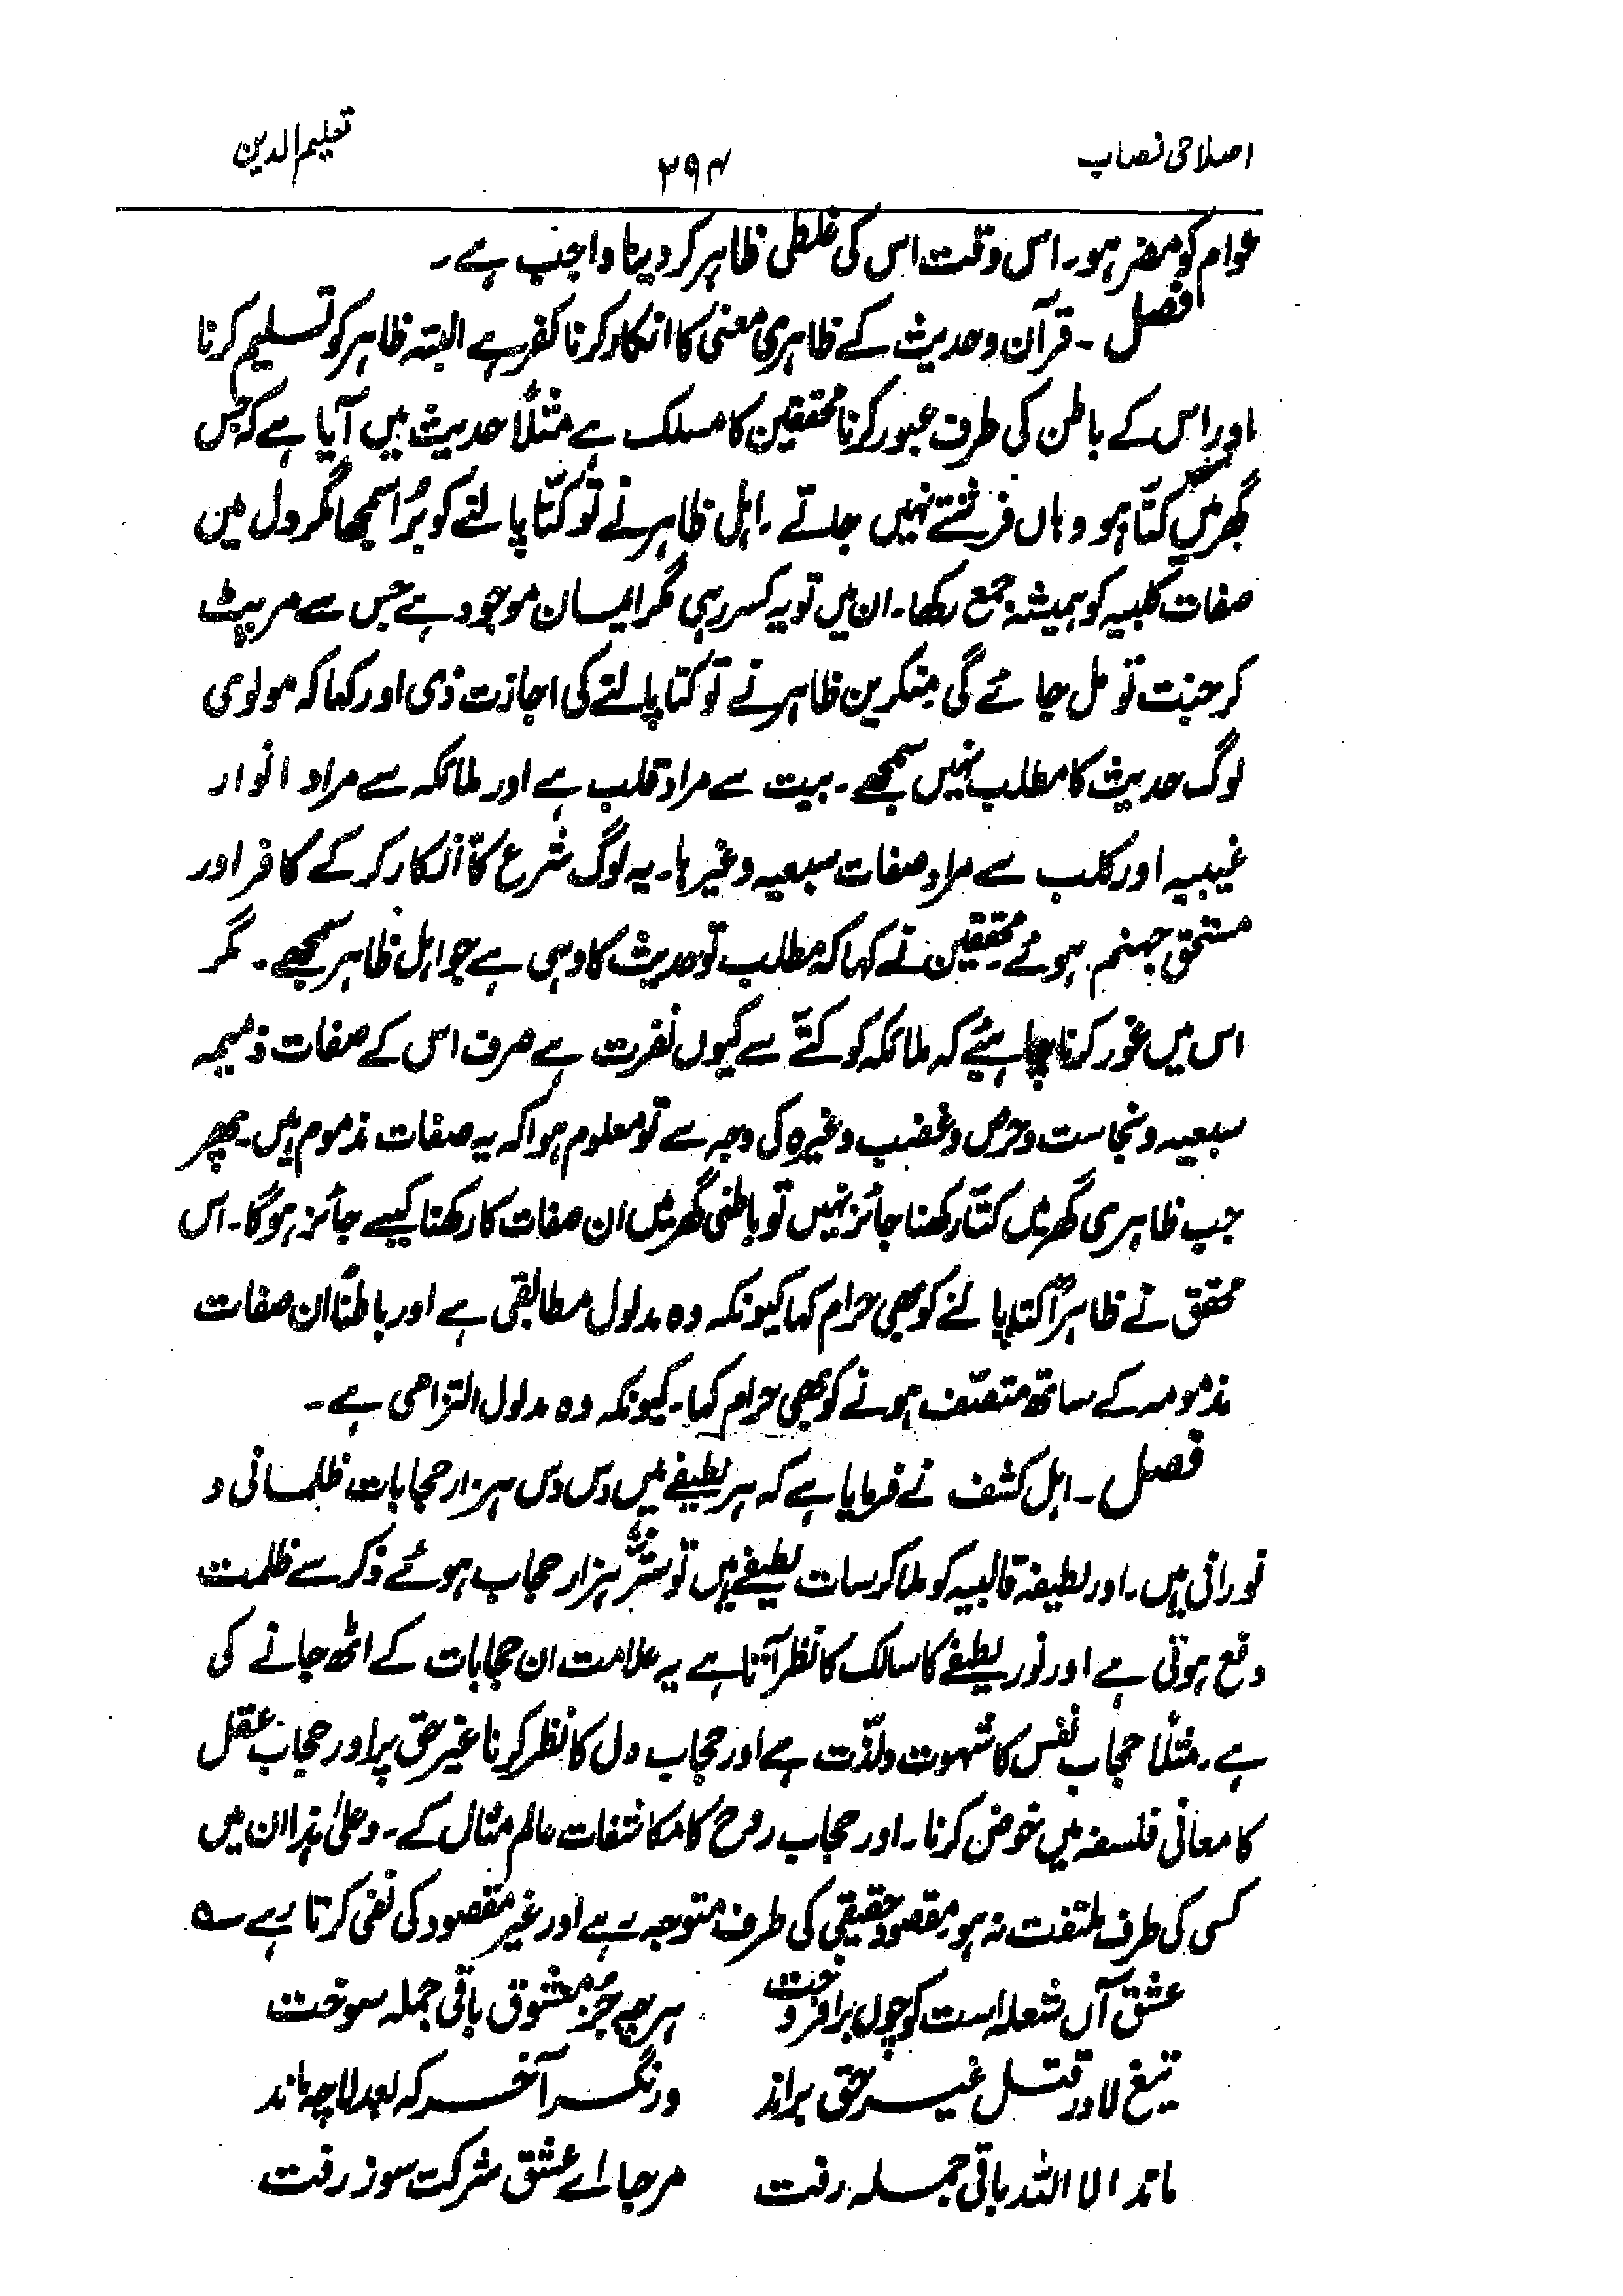 اصلاحی نصاب ۲۹۴ تعلیم الدین
عوام کو مضر ہو۔ اس وقت اس کی غلطی ظاہر کر دینا واجب ہے۔
فصل ۔ قرآن و حدیث کے ظاہری معنی کا انکار کرنا کفر ہے البتہ ظاہر کو تسلیم کرنا
اور اس کے باطن کی طرف عبور کرنا محققین کا مسلک ہے مثلاً حدیث میں آیا ہے کہ جس
گھر میں کتّا ہو وہاں فرشتے نہیں جاتے ۔ اہل ظاہر نے تو کتّا پالنے کو بُرا سمجھا مگر دل میں
صفات کلبیہ کو ہمیشہ جمع رکھا۔ ان میں تو یہ کسر رہی مگر ایمان موجود ہے جس سے مر پیٹ
کر جنت تو مل جائے گی منکرین ظاہر نے تو کتا پالنے کی اجازت دی اور کہا کہ مولوی
لوگ حدیث کا مطلب نہیں سمجھے ۔ بیت سے مراد قلب ہے اور ملائکہ سے مراد انوار
غیبیہ اور کلب سے مراد صفات سبعیہ وغیرہا۔ یہ لوگ شرع کا انکار کر کے کافر اور
مستحق جہنم ہوئے محققین نے کہا کہ مطلب تو حدیث کا وہی ہے جو اہل ظاہر سمجھے ۔ مگر
اس میں غور کرنا چاہیئے کہ ملائکہ کو کتّے سے کیوں نفرت ہے صرف اس کے صفات ذمیمہ
سبعیہ و نجاست و حرص و غضب وغیرہ کی وجہ سے تو معلوم ہوا کہ یہ صفات مذموم ہیں۔ پھر
جب ظاہری گھر میں کتّا رکھنا جائز نہیں تو باطنی گھر میں ان صفات کا رکھنا کیسے جائز ہوگا۔ اس
محقق نے ظاہراً کتا پالنے کو بھی حرام کہا کیونکہ وہ مدلول مطابقی ہے اور باطناً ان صفات
مذمومہ کے ساتھ متصّف ہونے کو بھی حرام کہا۔ کیونکہ وہ مدلول التزامی ہے ۔
فصل ۔ اہل کشف نے فرمایا ہے کہ ہر لطیفے میں دس دس ہزار حجابات ظلمانی و
نورانی ہیں۔ اور لطیفہ قالبیہ کو ملا کر سات لطیفے ہیں تو ستّر ہزار حجاب ہوئے ذکر سے ظلمت
دفع ہوتی ہے اور نور لطیفے کا سالک کا نظر آتا ہے یہ علامت ان حجابات کے اٹھ جانے کی
ہے۔ مثلاً حجاب نفس کا شہوت ولذّت ہے اور حجاب دل کا نظر کرنا غیر حق پر اور حجاب عقل
کا معانی فلسفہ میں خوض کرنا ۔ اور حجاب روح کا مکاشفات عالم مثال کے ۔ وعلیٰ ہذا ان میں
کسی کی طرف ملتفت نہ ہو مقصود حقیقی کی طرف متوجہ رہے اور غیر مقصود کی نفی کرتا رہے ؎
عشق آں شعلہ است کو چوں برافروخت ہر چہ جُز معشوق باقی جملہ سوخت
تیغ لا در قتل غیر حق براند در نگر آخر کہ بعد لا چہ ماند
ماند الا اللہ باقی جملہ رفت مرحبا اے عشق شرکت سوز رفت